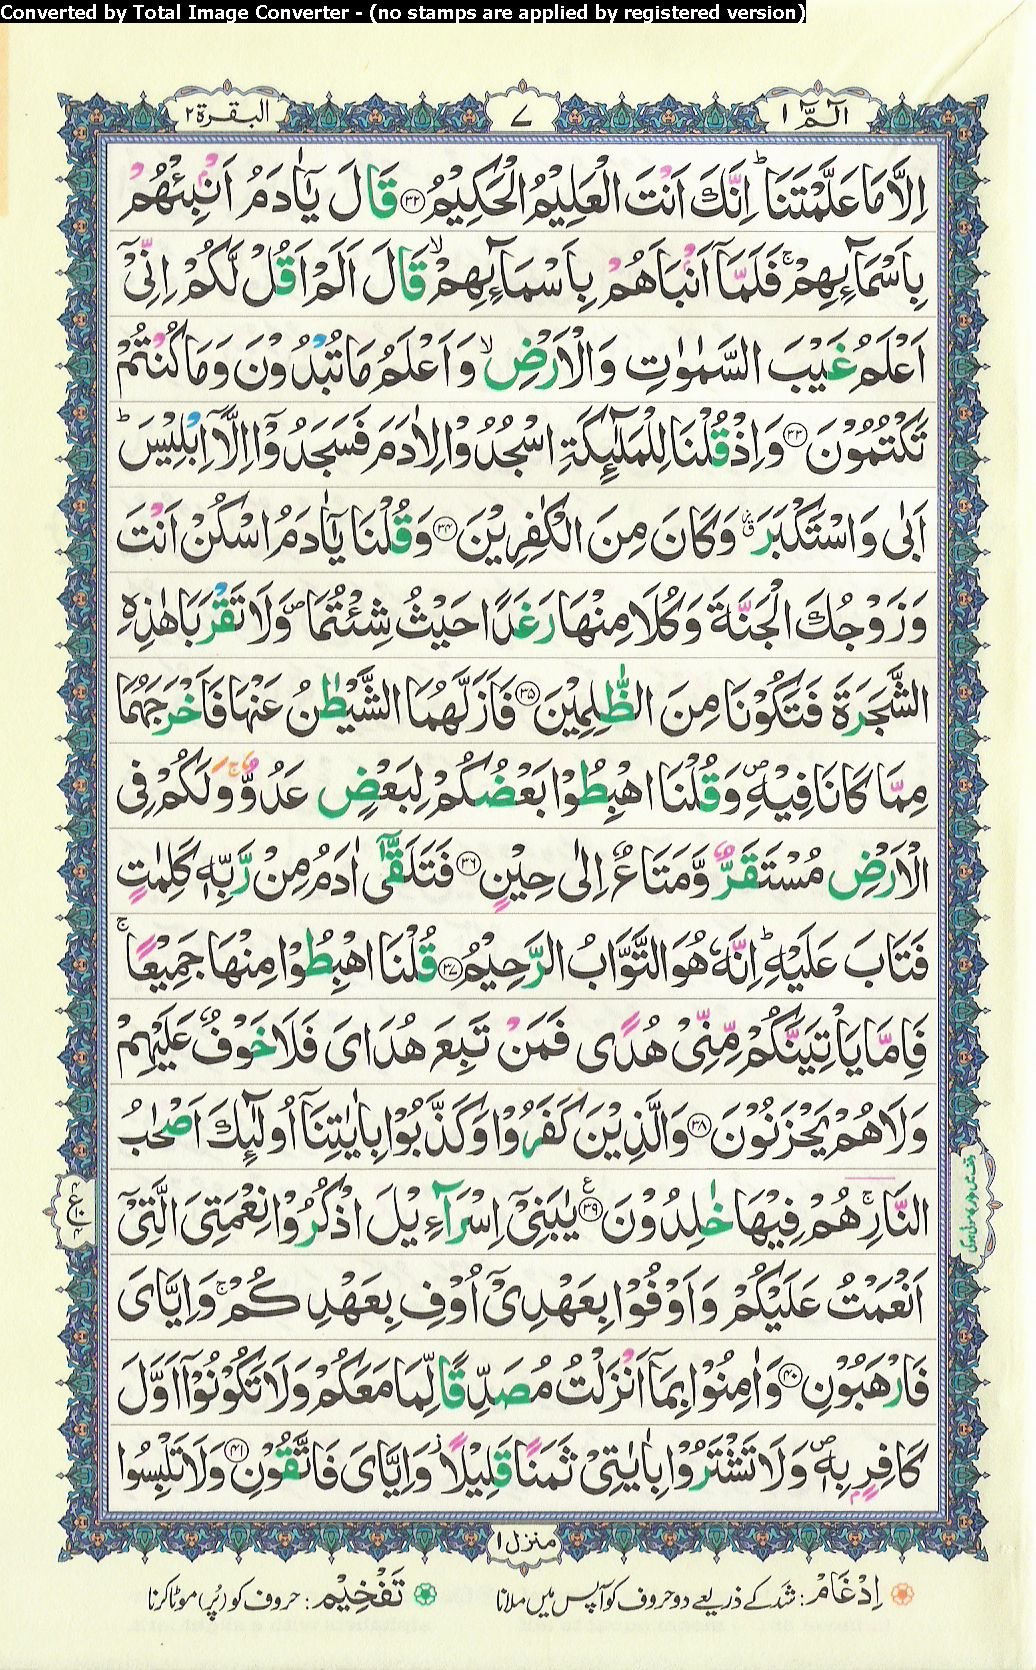 Converted by Total Image Converter - (no stamps are applied by registered version)
الٓمّٓ ١
٧
البقرة ٢
اِلَّا مَا عَلَّمْتَنَا ؕ اِنَّكَ اَنْتَ الْعَلِيْمُ الْحَكِيْمُ ﴿۳۲﴾ قَالَ يٰۤاٰدَمُ اَنْۢبِئْهُمْ
بِاَسْمَآئِهِمْ ۚ فَلَمَّاۤ اَنْۢبَاَهُمْ بِاَسْمَآئِهِمْ ۙ قَالَ اَلَمْ اَقُلْ لَّكُمْ اِنِّىْۤ
اَعْلَمُ غَيْبَ السَّمٰوٰتِ وَالْاَرْضِ ۙ وَاَعْلَمُ مَا تُبْدُوْنَ وَمَا كُنْتُمْ
تَكْتُمُوْنَ ﴿۳۳﴾ وَاِذْ قُلْنَا لِلْمَلٰٓئِكَةِ اسْجُدُوْا لِاٰدَمَ فَسَجَدُوْۤا اِلَّاۤ اِبْلِيْسَ ؕ
اَبٰى وَاسْتَكْبَرَ ۗ وَكَانَ مِنَ الْكٰفِرِيْنَ ﴿۳۴﴾ وَقُلْنَا يٰۤاٰدَمُ اسْكُنْ اَنْتَ
وَزَوْجُكَ الْجَنَّةَ وَكُلَا مِنْهَا رَغَدًا حَيْثُ شِئْتُمَا ۪ وَلَا تَقْرَبَا هٰذِهِ
الشَّجَرَةَ فَتَكُوْنَا مِنَ الظّٰلِمِيْنَ ﴿۳۵﴾ فَاَزَلَّهُمَا الشَّيْطٰنُ عَنْهَا فَاَخْرَجَهُمَا
مِمَّا كَانَا فِيْهِ ۪ وَقُلْنَا اهْبِطُوْا بَعْضُكُمْ لِبَعْضٍ عَدُوٌّ ۚ وَلَكُمْ فِى
الْاَرْضِ مُسْتَقَرٌّ وَّمَتَاعٌ اِلٰى حِيْنٍ ﴿۳۶﴾ فَتَلَقّٰٓى اٰدَمُ مِنْ رَّبِّهٖ كَلِمٰتٍ
فَتَابَ عَلَيْهِ ؕ اِنَّهٗ هُوَ التَّوَّابُ الرَّحِيْمُ ﴿۳۷﴾ قُلْنَا اهْبِطُوْا مِنْهَا جَمِيْعًا ۚ
فَاِمَّا يَاْتِيَنَّكُمْ مِّنِّىْ هُدًى فَمَنْ تَبِعَ هُدَاىَ فَلَا خَوْفٌ عَلَيْهِمْ
وَلَا هُمْ يَحْزَنُوْنَ ﴿۳۸﴾ وَالَّذِيْنَ كَفَرُوْا وَكَذَّبُوْا بِاٰيٰتِنَاۤ اُولٰٓئِكَ اَصْحٰبُ
النَّارِ ۚ هُمْ فِيْهَا خٰلِدُوْنَ ﴿۳۹﴾ يٰبَنِىْۤ اِسْرَآءِيْلَ اذْكُرُوْا نِعْمَتِىَ الَّتِىْۤ
اَنْعَمْتُ عَلَيْكُمْ وَاَوْفُوْا بِعَهْدِىْۤ اُوْفِ بِعَهْدِكُمْ ۚ وَاِيَّاىَ
فَارْهَبُوْنِ ﴿۴۰﴾ وَاٰمِنُوْا بِمَاۤ اَنْزَلْتُ مُصَدِّقًا لِّمَا مَعَكُمْ وَلَا تَكُوْنُوْۤا اَوَّلَ
كَافِرٍۭ بِهٖ ۪ وَلَا تَشْتَرُوْا بِاٰيٰتِىْ ثَمَنًا قَلِيْلًا ؗ وَّاِيَّاىَ فَاتَّقُوْنِ ﴿۴۱﴾ وَلَا تَلْبِسُوا
منزل ١
اِدْغَامْ : شد کے ذریعے دو حروف کو آپس میں ملانا
تَفْخِيْمْ : حروف کو (پُر) موٹا کرنا